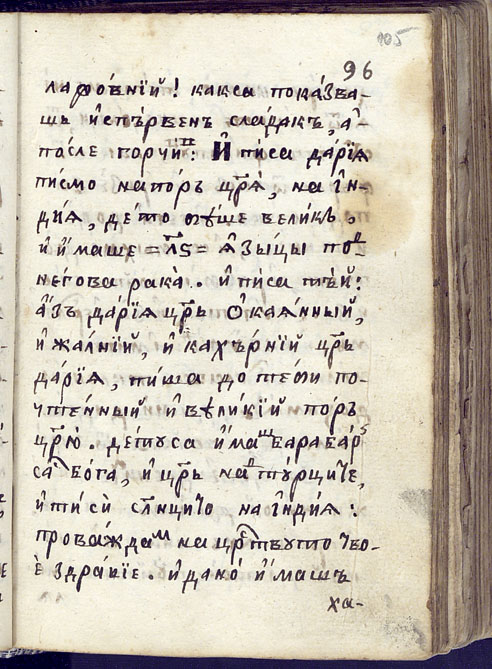 105
96
лафо́внїй! каксѧ пока́зва-
шь и҆спъ́рвенъ сла́дакъ, а҆
по́сле горчи́в: И҆ пи́са да́рїѧ
писмо напоръ цр҃ѧ̀, на и҆н-
ди́ѧ, де́то бѣ́ше вели́къ,
и҆ и҆́маше =л҃ѕ= ѧ҆зы́цы по
негова рака̀. и҆ пи́са тъ́й:
а҆́зъ да́рїѧ цр҃ь ѻ҆каѧ́нный,
и҆ жа́лнїй, и҆ кахъ́рнїй цр҃ь
да́рїѧ, пи́ша до те́бѝ по-
чте́нный и҆ вели́кїй по́ръ
цр҃ю. де́туса и҆́машъ барабар
са бо́га, и҆ цр҃ь на тꙋ́рците,
и҆ ти сѝ сл҃нцито на и҆нди́ѧ:
прова́ждам на цр҃твуто тво-
ѐ здра́вїе. и҆ дано́ и҆́машъ
ха-